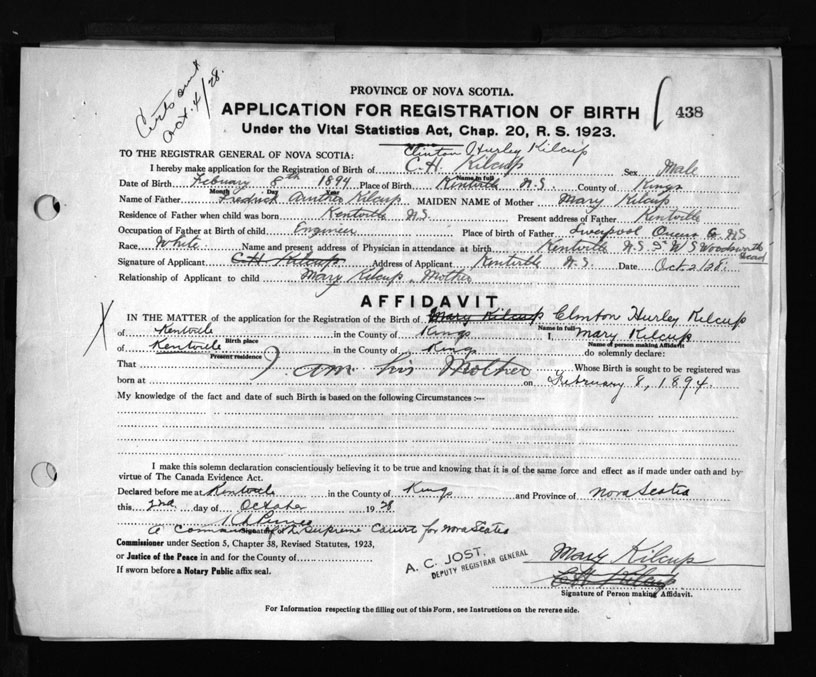 Oct. 4/28.
PROVINCE OF NOVA SCOTIA.
APPLICATION FOR REGISTRATION OF BIRTH
438
Under the Vital Statistics Act, Chap. 20, R. S. 1923.
Clinton Hurley Kilcup
TO THE REGISTRAR GENERAL OF NOVA SCOTIA:
I hereby make application for the Registration of Birth of C. H. Kilcup Sex Male
Name in full
Date of Birth Febuary 8th 1894 Place of Birth Kentville N.S. County of Kings
Month Day Year
Name of Father Fredrick Kilcup MAIDEN NAME of Mother Mary Kilcup
Residence of Father when child was born Kentville N.S. Present address of Father Kentville
Occupation of Father at Birth of child Engineer Place of birth of Father Liverpool Queens Co. N.S
Race White Name and present address of Physician in attendance at birth Kentville N.S. W S Woodsworth
Signature of Applicant C H Kilcup Address of Applicant Kentville N.S. Date Oct 2/28.
Relationship of Applicant to child Mary Kilcup Mother
AFFIDAVIT
IN THE MATTER of the application for the Registration of the Birth of Mary Kilcup Clinton Hurley Kilcup
Name in full
of Kentville in the County of Kings I, Mary Kilcup
Birth place Name of person making Affidavit
of Kentville in the County of Kings do solemnly declare:
Present residence
That I am his Mother Whose Birth is sought to be registered was
born at on February 8, 1894.
My knowledge of the fact and date of such Birth is based on the following Circumstances :—
I make this solemn declaration conscientiously believing it to be true and knowing that it is of the same force and effect as if made under oath and by
virtue of The Canada Evidence Act.
Declared before me at Kentville in the County of Kings and Province of Nova Scotia
this 2nd day of October 1928
Signature
A Supreme Court for Nova Scotia
Commissioner under Section 5, Chapter 38, Revised Statutes, 1923,
or Justice of the Peace in and for the County of
If sworn before a Notary Public affix seal.
A. C. JOST.
DEPUTY REGISTRAR GENERAL
Mary Kilcup
C H Kilcup
Signature of Person making Affidavit.
For Information respecting the filling out of this Form, see Instructions on the reverse side.